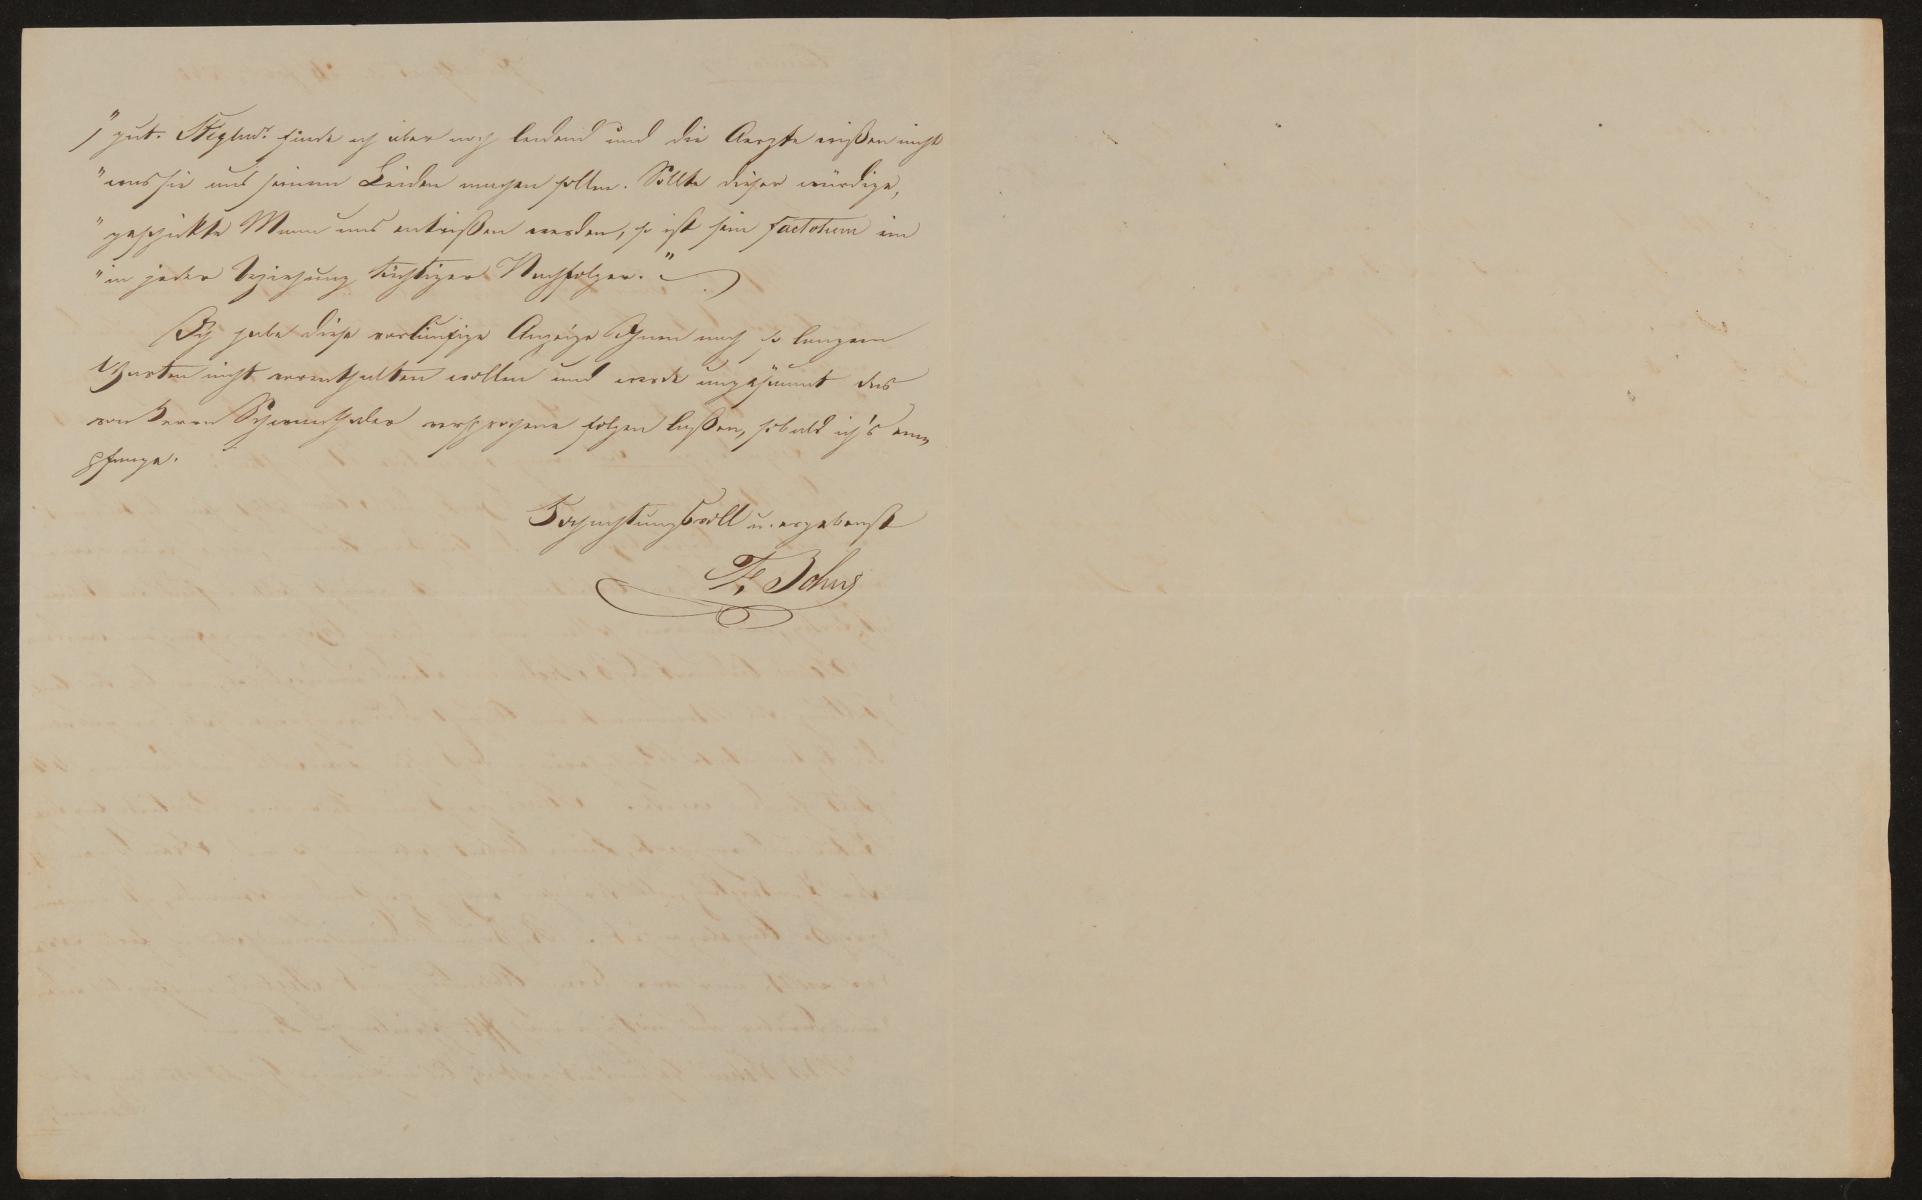 " gut. Stiglmr. finde ich aber noch leidend und die Aerzte wißen nicht
" was sie aus seinem Leiden machen sollen. Sollte dieser würdige,
" geschickte Mann uns entrißen werden, so ist sein factotum ein
" in jeder Beziehung tüchtiger Nachfolger. "
Ich habe diese vorläufige Anzeige Ihnen nach so langem
Warten nicht vorenthalten wollen und werde ungesäumt das
von Herrn Schwanthaler versprochene folgen laßen, sobald ich's em-
pfange.
Hochachtungsvoll u. ergebenst